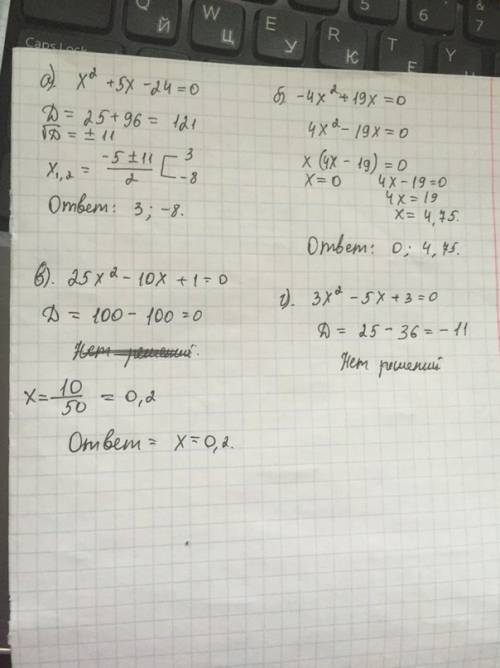 Caps Lock
Q
Й
W
Ц
E
У
R
К
T
Е
Y
5
6
&
7
а) x² + 5x - 24 = 0
D = 25 + 96 = 121
√D = ± 11
x₁,₂ = (-5 ± 11)/2 [ 3
-8
Ответ: 3; -8.
б) -4x² + 19x = 0
4x² - 19x = 0
x (4x - 19) = 0
x = 0 4x - 19 = 0
4x = 19
x = 4,75.
Ответ: 0; 4,75.
в). 25x² - 10x + 1 = 0
D = 100 - 100 = 0
Нет решений.
x = 10/50 = 0,2
Ответ = x = 0,2.
г). 3x² - 5x + 3 = 0
D = 25 - 36 = -11
Нет решений